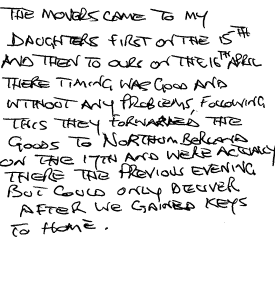 THE MOVERS CAME TO MY
DAUGHTERS FIRST ON THE 15TH
AND THEN TO OURS ON THE 15TH APRIL
THERE TIMING WAS GOOD AND
WITHOUT ANY PROBLEMS, FOLLOWING
THIS THEY FORWARDED THE
GOODS TO NORTHUMBERLAND
ON THE 17TH AND WERE ACTUALLY
THERE THE PREVIOUS EVENING
BUT COULD ONLY DELIVER
AFTER WE GAINED KEYS
TO HOME.